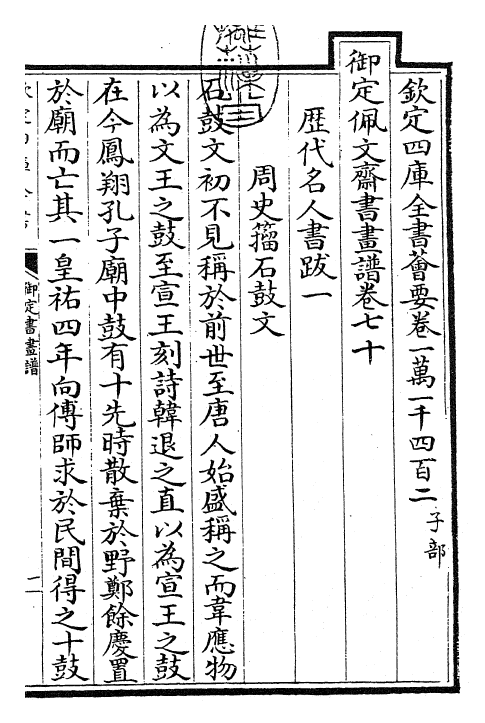 欽定四庫全書薈要卷一萬一千四百二 子部
御定佩文齋書畫譜卷七十
歴代名人書跋一
周史籀石鼓文
石鼓文初不見稱於前世至唐人始盛稱之而韋應物
以為文王之鼓至宣王刻詩韓退之直以為宣王之鼓
在今鳳翔孔子廟中鼓有十先時散棄於野鄭餘慶置
於廟而亡其一皇祐四年向傅師求於民間得之十鼓
御定書畫譜